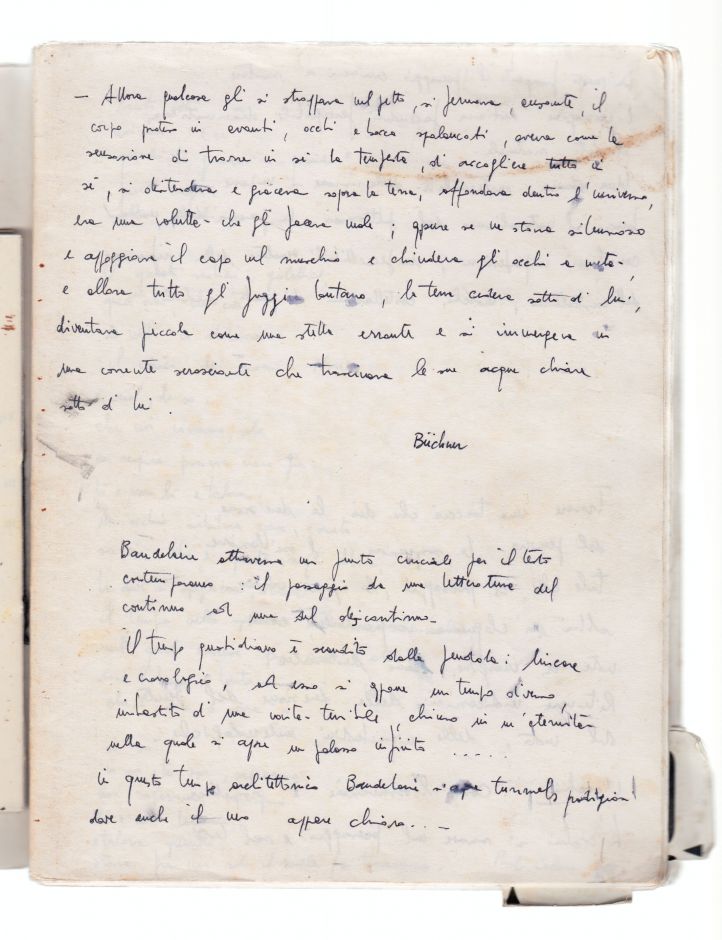 – Allora qualcosa gli si strappava nel petto, si fermava, ansante, il
corpo proteso in avanti, occhi e bocca spalancati, aveva come la
sensazione di trarre in sé la tempesta, di accogliere tutto in
sé, si distendeva e giaceva sopra la terra, affondava dentro l'universo,
era una voluttà che gli faceva male; oppure se ne stava silenzioso
e appoggiava il capo sul muschio e chiudeva gli occhi a metà,
e allora tutto gli fuggiva lontano, la terra cedeva sotto di lui,
diventava piccola come una stella errante e si immergeva in
una corrente scrosciante che trascinava le sue acque chiare
sotto di lui.
Büchner
Baudelaire attraversa un punto cruciale per il testo
contemporaneo: il passaggio da una letteratura del
continuo ad una del discontinuo.
Il tempo quotidiano è scandito dalla pendola: lineare
e cronologico, ad esso si oppone un tempo diverso,
imbastito di una verità terribile, chiuso in un'eternità
nella quale si apre un palazzo infinito .....
in questo tempo architettonico Baudelaire scopre tunnels prodigiosi
dove anche il nero appare chiaro... –